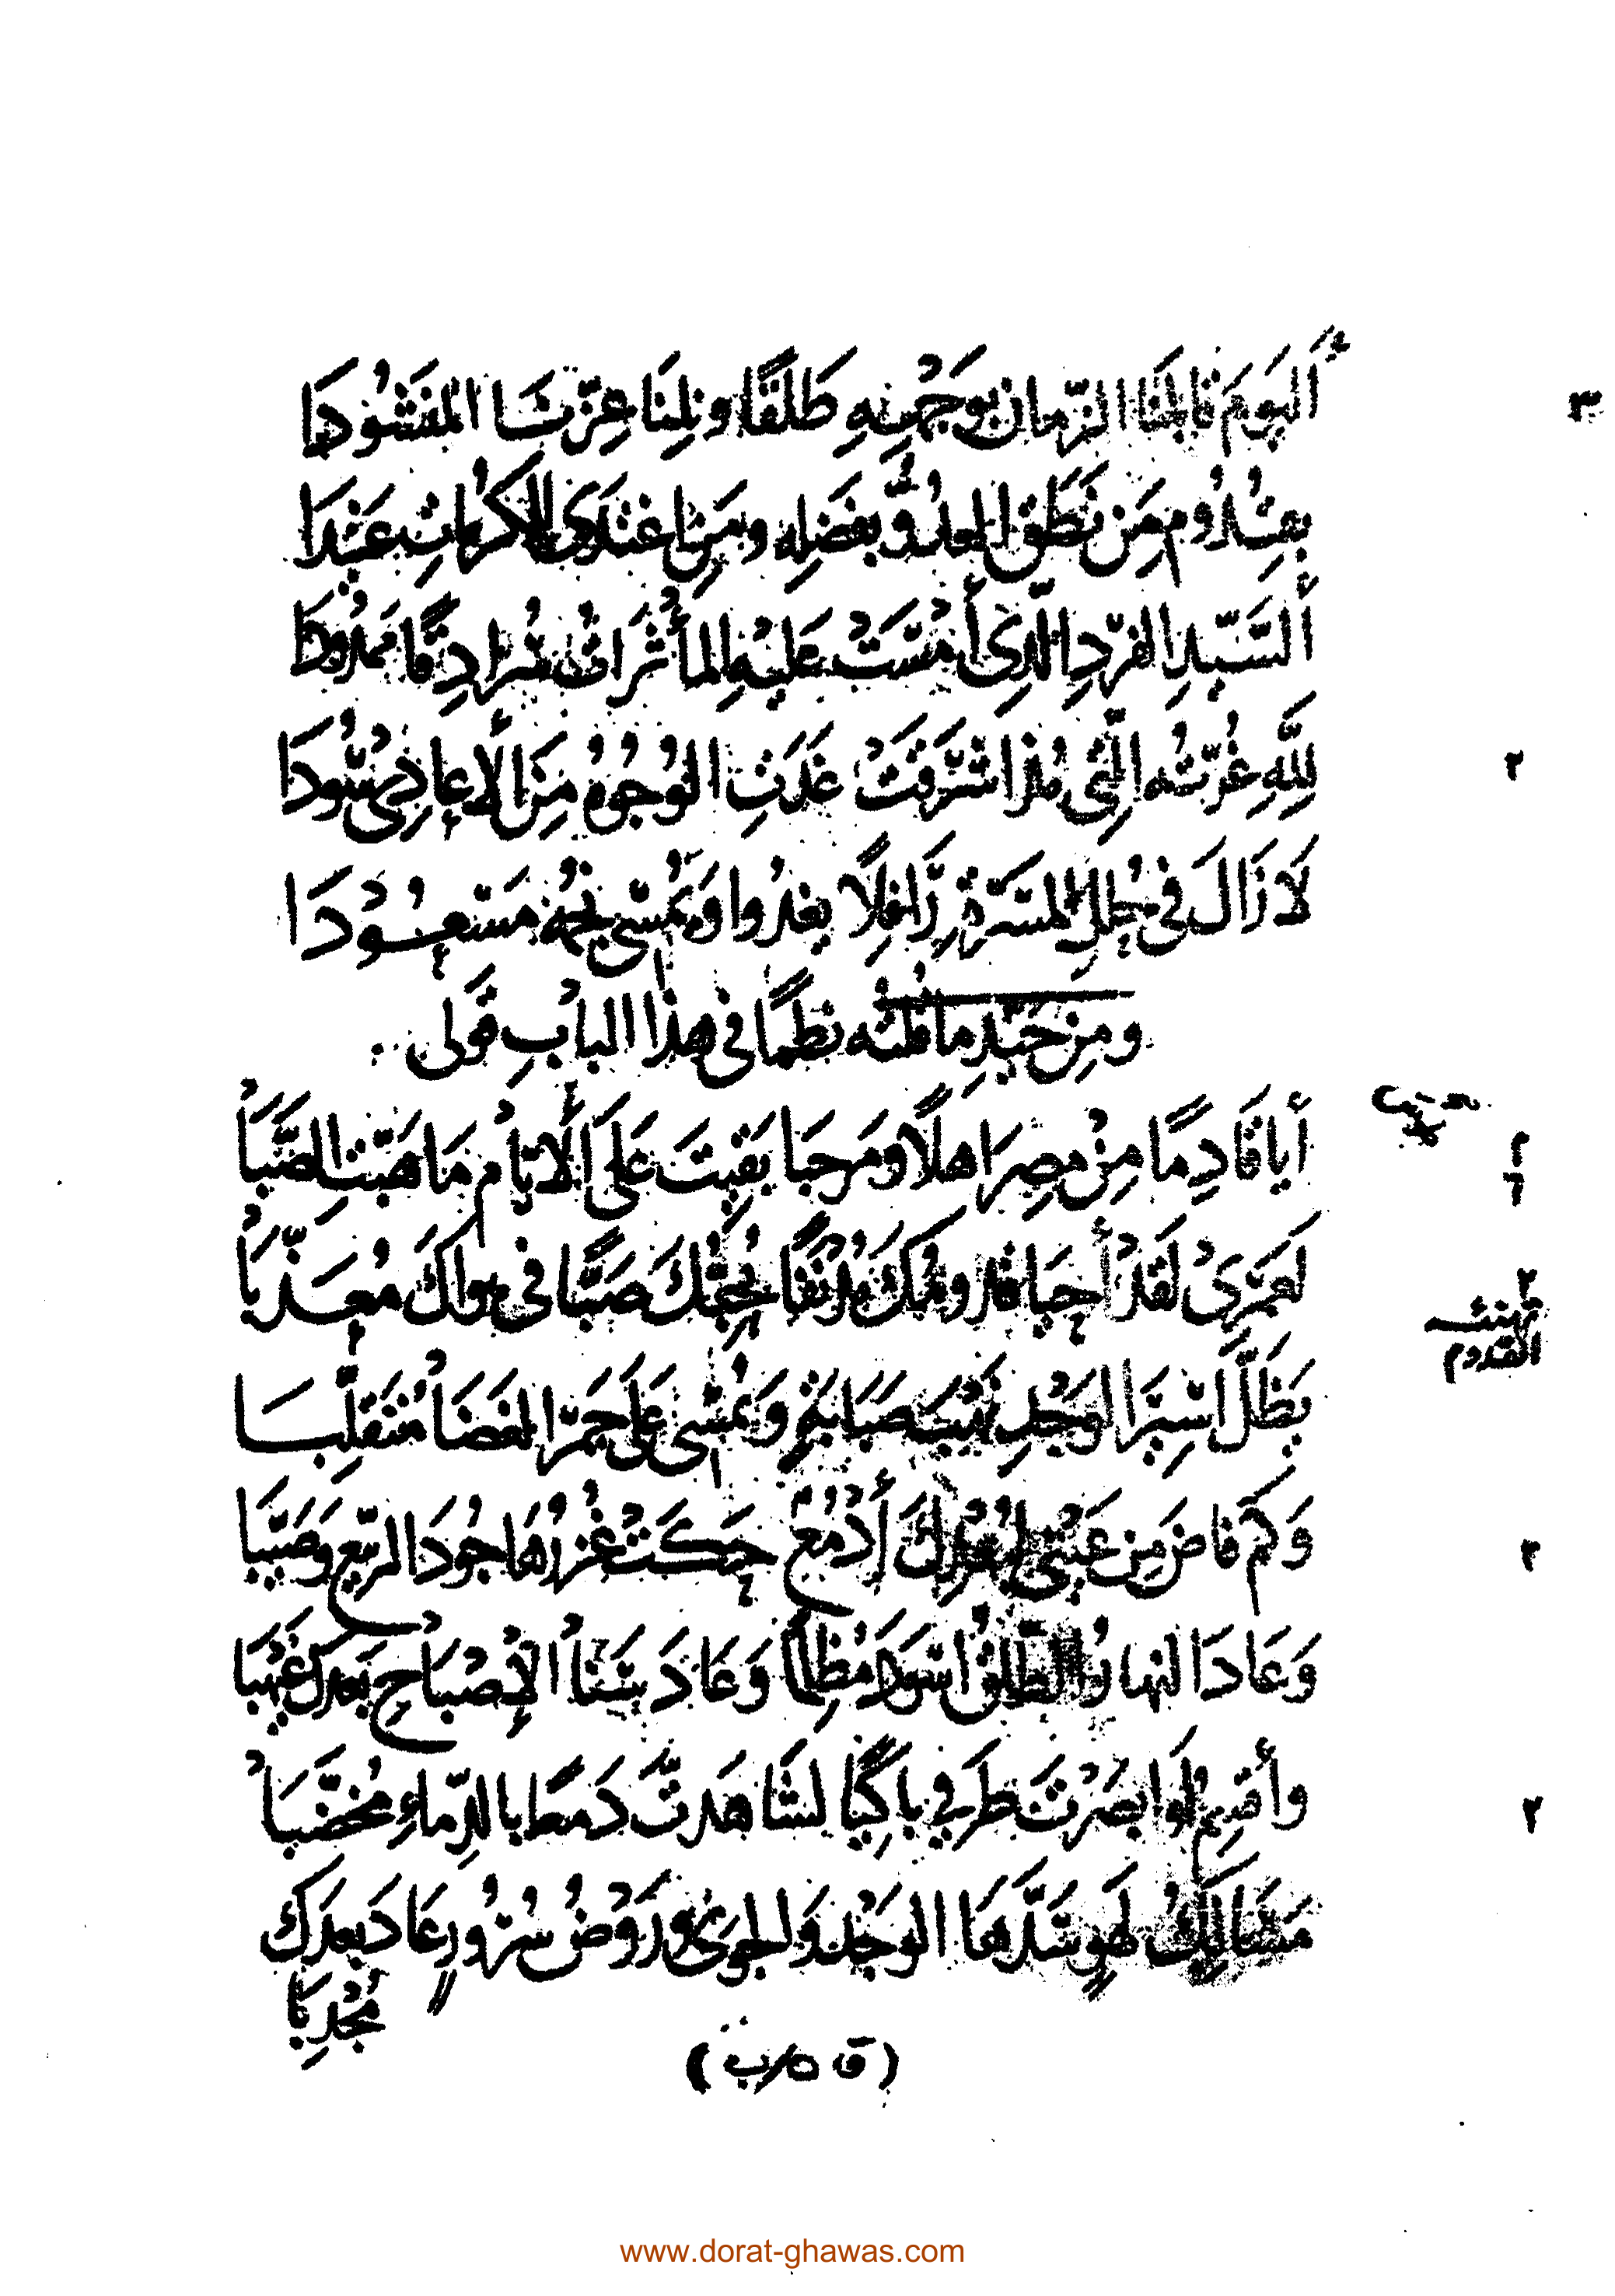 اَليَومَ قابلنَا الزّمان بوَجْهِهِ طَلقًا ونِلنَا عِزّنَا المَنشُودَا
بقُدُومِ مَن نَطَقَ العدُوُّ بفَضلِه ومَن اغتدى للمكرُماتِ عَمِيدَا
اَلسَّيّدِ الفرْدِ الّذِى أَمْسَتْ عَليْهِ المأثُرَاتُ سُرَادِقًا مَمْدُودَا
لِلّهِ غُرّتُه الّتى مُذ اَشرَقَتْ غَدَتِ الوُجُوهُ مِنَ الأعادِى سُودَا
لَا زَالَ فى حُلَلِ المسَرّةِ رَافِلًا يغدُوا وَيُمْسِى نجمُه مَسْعُوْدَا
ومِن جَيّدِ ما قلتُه نظمًا فى هذا البابِ قَولى
أيا قَادِمًا مِنْ مِصرَ اهلًا ومَرحَبا بَقِيتَ عَلَى الأيّامِ مَا هَبّتِ الصَّبَا
لَعَمْرِىْ لَقَدْ أَحيَا قدومُكَ مُدْنَفًا بحُبّكَ صَبًّا فى هواكَ مُعَذّبَا
يَظَلّ اَسِيرَ الوَجْدِ نَهْبَ صَبَابَةٍ وَيُمْسِى عَلَى جَمْرِ الغَضَا مُتَقَلِّبَا
وَكَم فاضَ مِن عَيْنِى لبُعْدِكَ أَدْمُعٌ حَكَتْ غُزْرُهَا جُودَ الرّبيعِ وَصَيّبَا
وَعَادَ النهارُ الطلقُ اسْوَدَ مُظلِمًا وَعَادَ سَنَا الإِصْبَاحِ بَعدَكَ غَيْهَبَا
وأقسِمُ لَو ابصَرْتَ طَرفِي باكِيًا لشَاهَدْتَ دَمعًا بالدِّماءِ مُخضَّبَا
مَسَالِكُ لَهوٍ سَدَّهَا الوَجْدُ وَالجوَى وَرَوْضُ سُرُورٍ عَادَ بعدَكَ
مُجْدِبَا
(ق ٥٥/ب)
٣
٢
٢
٦
٢
تهنئة
القدوم
٢
٢
www.dorat-ghawas.com